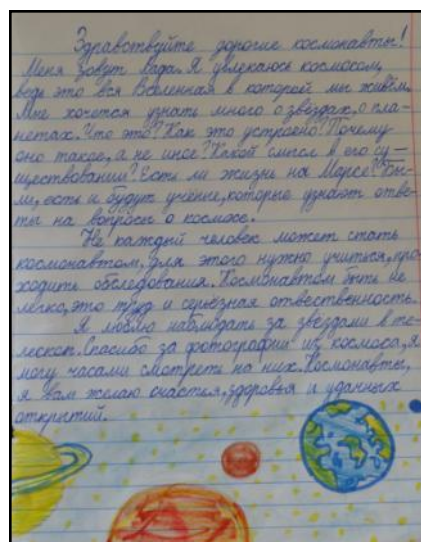 Здравствуйте дорогие космонавты!
Меня зовут Лада. Я увлекаюсь космосом,
ведь это вся Вселенная в которой мы живём.
Мне хочется узнать много о звёздах, о пла-
нетах. Что это? Как это устроено? Почему
оно такое, а не иное? Какой смысл в его су-
ществовании? Есть ли жизнь на Марсе? Бы-
ли, есть и будут учёные, которые узнают отве-
ты на вопросы о космосе.
Не каждый человек может стать
космонавтом, для этого нужно учиться, про-
ходить обследования. Космонавтом быть не
легко, это труд и серьёзная отвественность.
Я люблю наблюдать за звёздами в те-
лескоп. Спасибо за фотографии из космоса, я
могу часами смотреть на них. Космонавты,
я вам желаю счастья, здоровья и удачных
открытий.